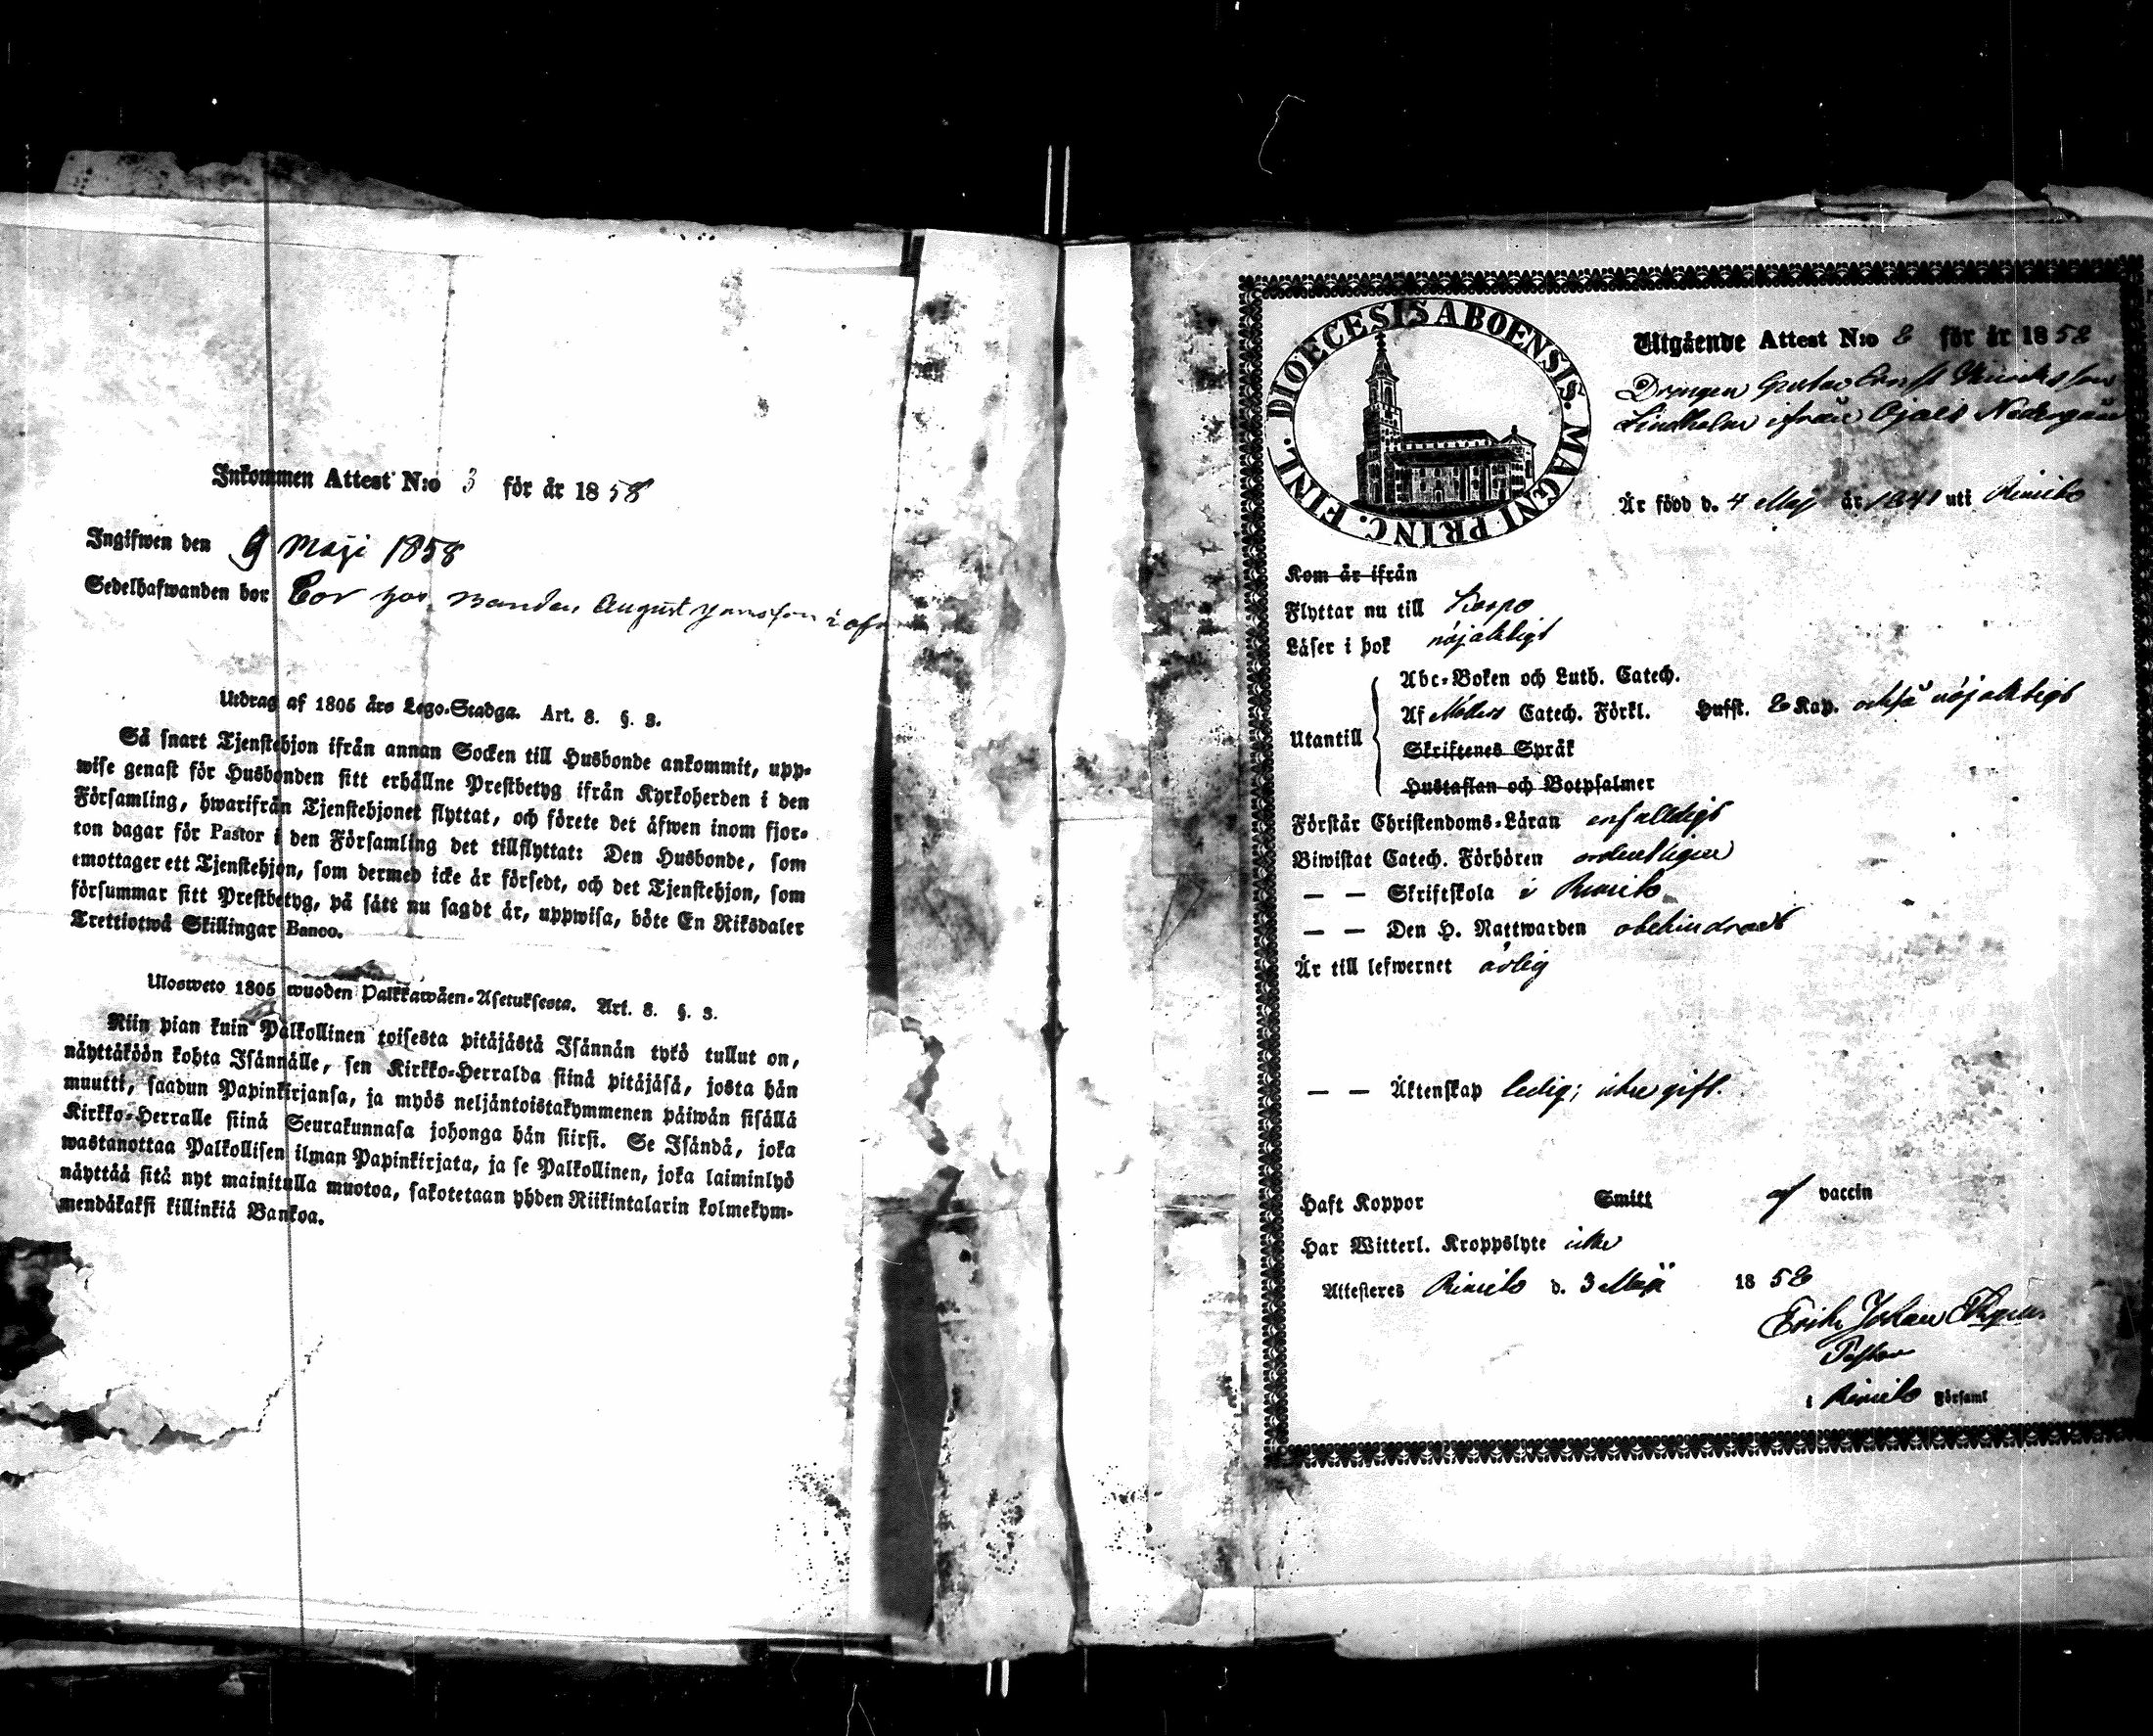 Inkommen Attest N:o 3 för år 1858
Ingifwen den 9 Maji 1858
Sedelhafwanden bor Bor hos Bonden August Jansson i
Utdrag af 1805 års Lego-Stadga. Art. 8. §. 3.
Så snart Tjenstehjon ifrån annan Socken till Husbonde ankommit, upp-
wise genast för Husbonden sitt erhållne Prestbetyg ifrån Kyrkoherden i den
Församling, hwarifrån Tjenstehjonet flyttat, och förete det äfwen inom fjor-
ton dagar för Pastor i den Församling det tillflyttat: Den Husbonde, som
emottager ett Tjenstehjon, som dermed icke är försedt, och det Tjenstehjon, som
försummar sitt Prestbetyg, på sätt nu sagdt är, uppwisa, böte En Riksdaler
Trettiotwå Skillingar Banco.
Ulosweto 1805 wuoden Palkkawäen-Asetuksesta. Art. 8. §. 3.
Niin pian kuin Palkollinen toisesta pitäjästä Isännän tykö tullut on,
näyttäköön kohta Isännälle, sen Kirkko-Herralda siinä pitäjäsä, josta hän
muutti, saadun Papinkirjansa, ja myös neljäntoistakymmenen päiwän sisällä
Kirkko-Herralle siinä Seurakunnasa johonga hän siirsi. Se Isändä, joka
wastanottaa Palkollisen ilman Papinkirjata, ja se Palkollinen, joka laiminlyö
näyttää sitä nyt mainitulla muotoa, sakotetaan yhden Riikintalarin kolmekym-
mendäkaksi killinkiä Bankoa.
DIOECESIS ABOENSIS. MAGNI PRINC. FINL.
Utgående Attest N:o 8 för år 1858
Drengen Gustav Ernst Henriksson
Lindholm ifrån Ojais Nedergård
Är född d. 4 Maj år 1841 uti Rimito
Kom år ifrån
Flyttar nu till Korpo
Läser i bok nöjaktigt
Utantill
Abc-Boken och Luth. Catech.
Af Möllers Catech. Förkl. Hufst. 8 Kap. också nöjaktigt
Skriftenes Språk
Hustaflan och Botpsalmer
Förstår Christendoms-Läran enfaldigt
Biwistat Catech. Förhören ordentligen
— — Skriftskola i Rimito
— — Den H. Nattwarden obehindradt
Är till lefwernet ärlig
— — Äktenskap ledig; icke gift.
Haft Koppor Smitt af vaccin
Har Witterl. Kroppslyte icke
Attesteres Rimito d. 3 Maji 1858
Erik Johan
Pastor
i Rimito Församl